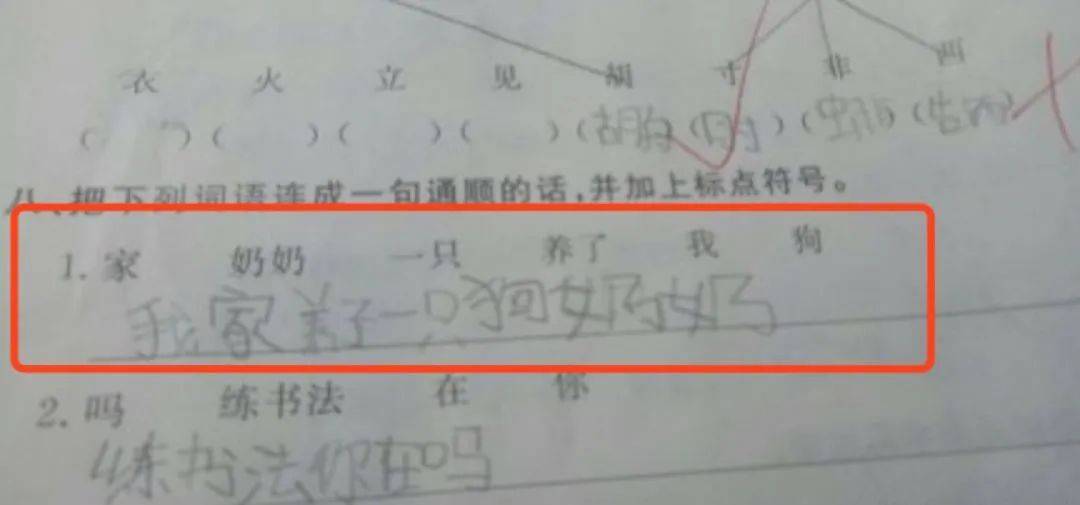 衣 火 立 见 胡 寸 非 西
( )( )( )( )(胡 )( )( )( )
八、把下列词语连成一句通顺的话,并加上标点符号。
1. 家 奶奶 一只 养了 我 狗
我家养了一只狗奶奶
2. 吗 练书法 在 你
练书法你在吗